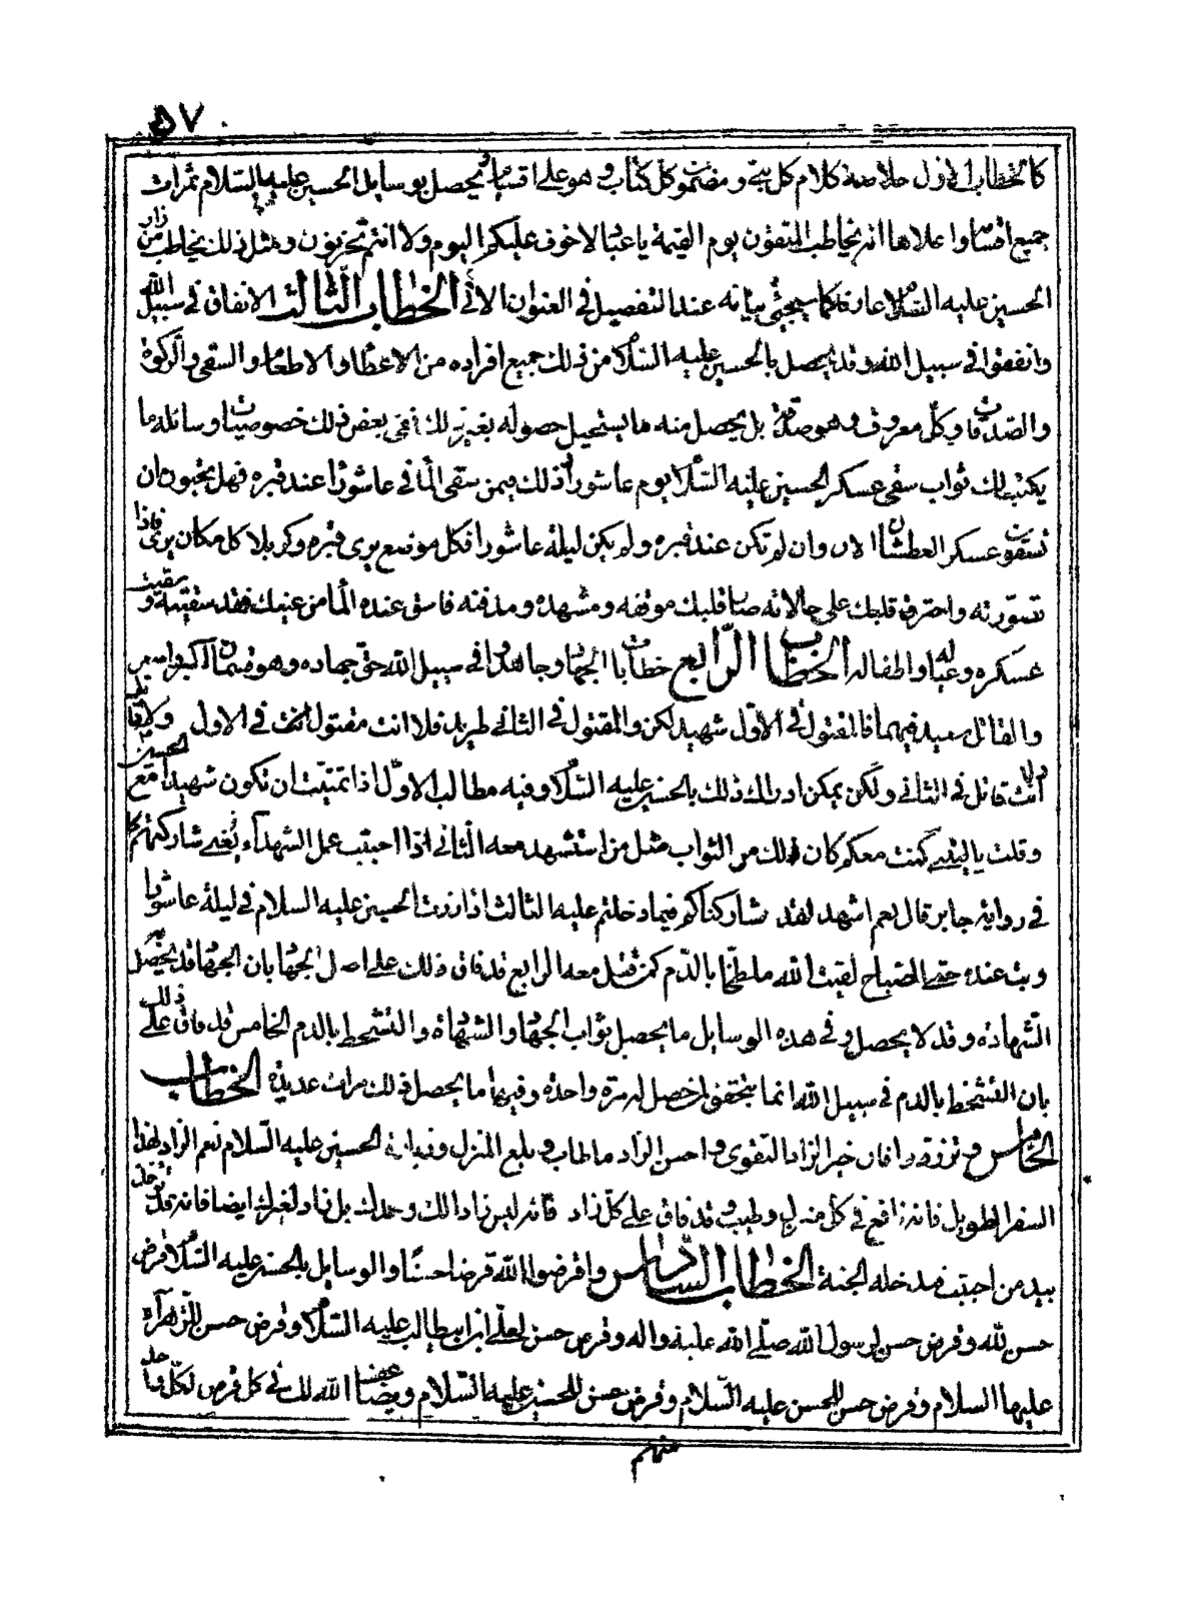 ٥٧
كالخطاب الاول خلاصة كلام كل نبي ومضمون كل كتاب وهو على اقسام يحصل بوسايل الحسين عليه السلام ثمرات
جميع اقسام واعلاها انه يخاطب المتقون يوم القيمة يا عباد لا خوف عليكم اليوم ولا انتم تحزنون ومثل ذلك يخاطب من زار
الحسين عليه السلام عارفا كما سيجئ بيانه عند التفصيل في العنوان الاتي الخطاب الثالث الانفاق في سبيل الله
وانفقوا في سبيل الله وقد يحصل بالحسين عليه السلام من ذلك جميع افراده من الاعطاء والاطعام والسقي والزكوة
والصدقات وكل معروف وهو صدقة بل يحصل منه ما يستحيل حصوله بغير ذلك ففي بعض ذلك خصوصيات وسائله ما
يكتب لك ثواب سقي عسكر الحسين عليه السلام يوم عاشورا وذلك فيمن سقى الماء في عاشورا عند قبره فهل تحبون ان
تسقون عسكر العطشان الان وان لم تكن عند قبره ولم يكن ليلة عاشورا فكل موضع يرى قبره وكربلا كل مكان يرى فاذا
تصورته واحترق قلبك على حالاته صار قلبك موقفه ومشهده ومدفنه فاسق عنده الماء من عينيك فقد سقيته وسقيت
عسكره وعياله واطفاله الخطاب الرابع خطابات الجهاد وجاهدوا في سبيل الله حق جهاده وهو قسمان اكبر واصغر
والقاتل سعيد فيهما فالمقتول في الاول شهيد لكن والمقتول في الثاني طريد فلا انت مقتول الحق في الاول ولا
انت قاتل في الثاني ولكن يمكن ادراك ذلك بالحسين عليه السلام وفيه مطالب الاول اذا تمنيت ان تكون شهيدا مع الحسين
وقلت يا ليتني كنت معكم كان لك من الثواب مثل من استشهد معه الثاني اذا احببت عمل الشهداء يعني شاركتهم كما
في رواية جابر قال نعم اشهد لقد شاركناكم فيما دخلتم عليه الثالث اذا زرت الحسين عليه السلام في ليلة عاشورا
وبت عنده حتى الصباح لقيت الله ملطخا بالدم كمن قتل معه الرابع قد فاق ذلك على اصل الجهاد بان الجهاد قد يحصل به
الشهادة وقد لا يحصل وفي هذه الوسايل ما يحصل ثواب الجهاد والشهادة والتشحط بالدم الخامس قد فاق على ذلك
بان التشحط بالدم في سبيل الله انما يتحقق مرة واحدة وفيها ما يحصل ذلك مرات عديدة الخطاب
الخامس وتزودوا فان خير الزاد التقوى واحسن الزاد ما طاب وبلغ المنزل وزيارة الحسين عليه السلام نعم الزاد لهذا
السفر الطويل فانه نافع في كل منزل وطيب وقد فاق على كل زاد فانه ليس زادا لك وحدك بل زاد لغيرك ايضا فانه قد توخذ
بيد من احببت فتدخله الجنة الخطاب السادس واقرضوا الله قرضا حسنا والوسايل بالحسين عليه السلام قرض
حسن لله وقرض حسن لرسول الله صلى الله عليه واله وقرض حسن لعلي ابن ابيطالب عليه السلام وقرض حسن للزهراء
عليها السلام وقرض حسن للحسن عليه السلام وقرض حسن للحسين عليه السلام ويضاعف الله لك في كل قرض لكل واحد
منهم